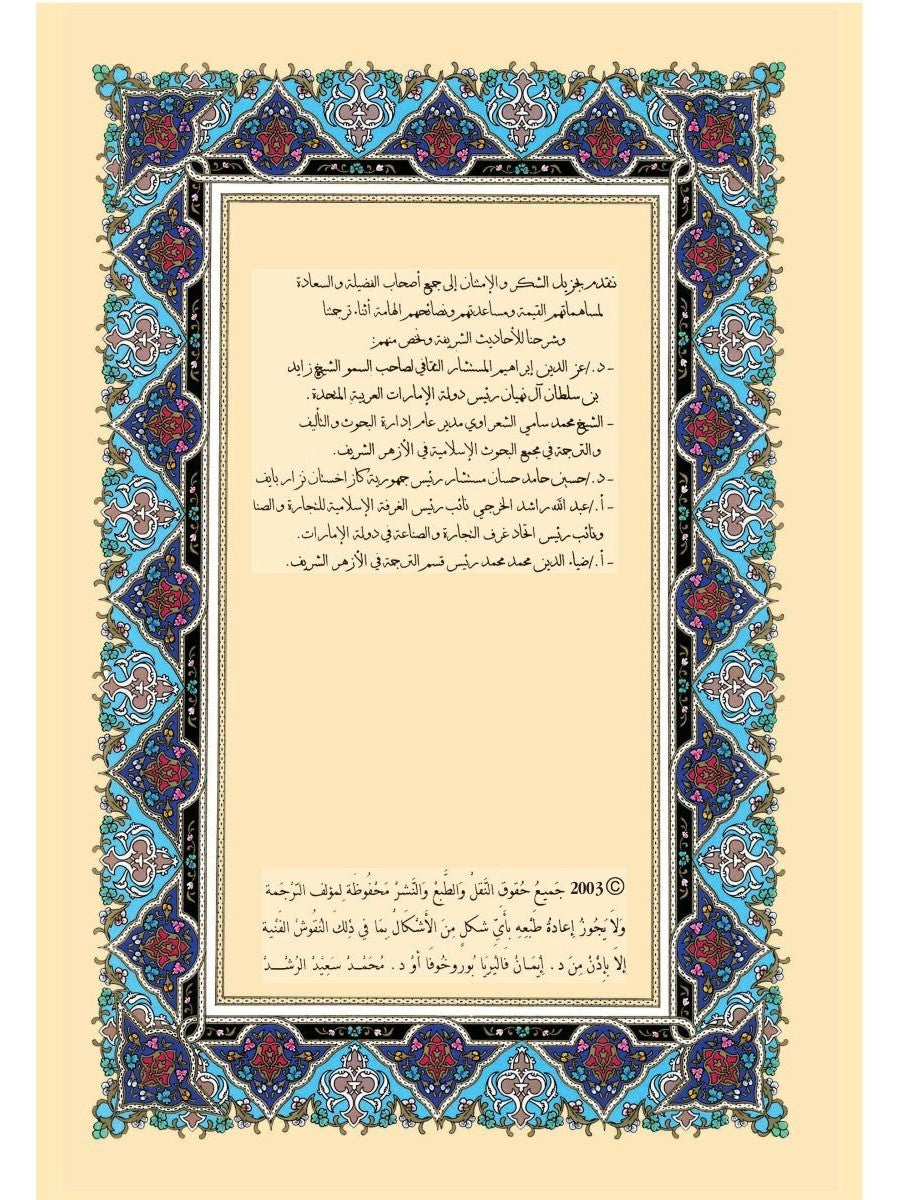 نتقدم بجزيل الشكر والإمتنان إلى جميع أصحاب الفضيلة والسعادة
لمساهماتهم القيمة ومساعدتهم ونصائحهم الهامة أثناء ترجمتنا
وشرحنا للأحاديث الشريفة ونخص منهم:
- د./عز الدين إبراهيم المستشار الثقافي لصاحب السمو الشيخ زايد
بن سلطان آل نهيان رئيس دولة الإمارات العربية المتحدة.
- الشيخ محمد سامي الشعراوي مدير عام إدارة البحوث والتأليف
والترجمة في مجمع البحوث الإسلامية في الأزهر الشريف.
- د./حسين حامد حسان مستشار رئيس جمهورية كازاخستان نزارباييف
- أ./عبد الله راشد الخرجي نائب رئيس الغرفة الإسلامية للتجارة والصنا
ونائب رئيس اتحاد غرف التجارة والصناعة في دولة الإمارات.
- أ./ضياء الدين محمد محمد رئيس قسم الترجمة في الأزهر الشريف.
© 2003 جَميعُ حُقوق النَّقلْ وَالطَّبعْ وَالنَّشرْ مَحْفُوظَة لِمؤلف التَرْجَمة
وَلاَ يَجُوزُ إعادةُ طَبْعِهِ بِأَيِّ شكلٍ مِنَ الأَشْكَالْ بِمَا في ذلكَ النُقُوشْ الفَنْية
إلاَ بِإِذْنْ مِنَ د. إيمَانْ فَاليْريَا بُوروخُوفَا أوْ د. مُحَمَدْ سَعِيَدْ الرُشْــدْ